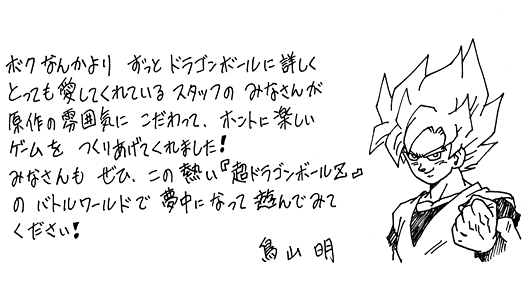 ボクなんかより ずっとドラゴンボールに詳しく
とっても愛してくれているスタッフの みなさんが
原作の雰囲気に こだわって、ホントに楽しい
ゲームを つくりあげてくれました!
みなさんも ぜひ、この熱い『超ドラゴンボールZ』
の バトルワールドで 夢中になって 遊んでみて
ください!
鳥山 明